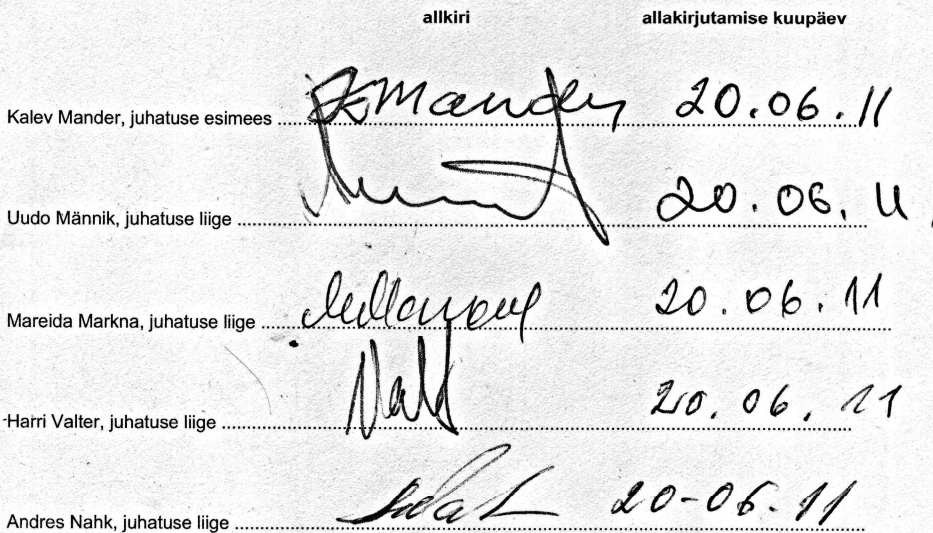 allkiri allakirjutamise kuupäev
Kalev Mander, juhatuse esimees ........ Mander 20.06.11
Uudo Männik, juhatuse liige ........ 20.06.11
Mareida Markna, juhatuse liige ........ 20.06.11
Harri Valter, juhatuse liige ........ 20.06.11
Andres Nahk, juhatuse liige ........ 20-06.11